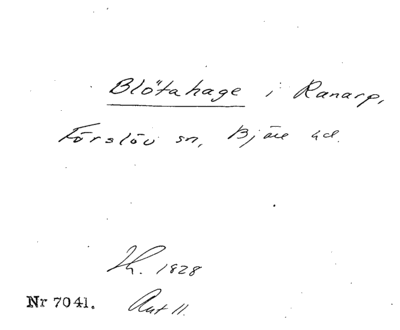 Blötahage i Ranarp,
Förslöv sn, Bjäre hd.
Th. 1828
Nr 7041. Akt 11.